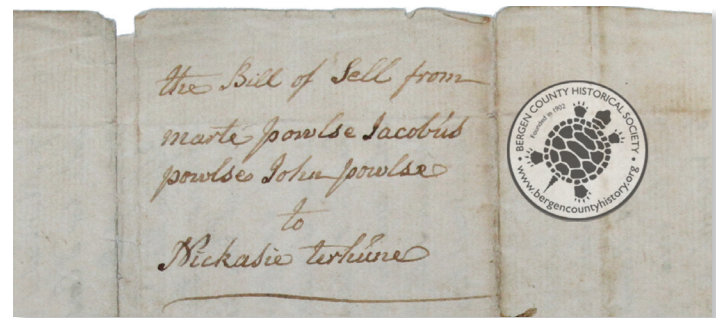 the Bill of Sell from
marte powlse Jacobús
powlse John powlse
to
Nickasie terhúne
BERGEN COUNTY HISTORICAL SOCIETY
Founded in 1902
www.bergencountyhistory.org